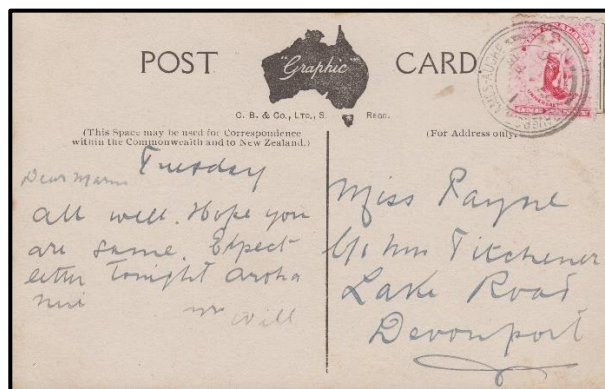 POST CARD
"Graphic"
C. B. & Co., LTD., S. REGD.
(This Space may be used for Correspondence
within the Commonwealth and to New Zealand.)
(For Address only.
Tuesday
Dear
all well. Hope you
are same. Expect
letter tonight aroha
nui
Will
Miss Payne
C/o Mrs Titchener
Lake Road
Devonport